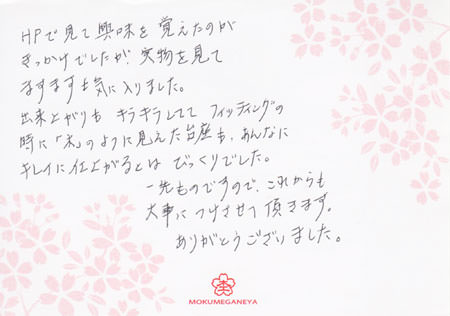 HPで見て興味を覚えたのが
きっかけでしたが、実物を見て
ますます気に入りました。
出来上がりもキラキラしてて フィッティングの
時に「木」のように見えた台座も、あんなに
キレイに仕上がるとは びっくりでした。
一生ものですので、これからも
大事につけさせて頂きます。
ありがとうございました。
木
MOKUMEGANEYA